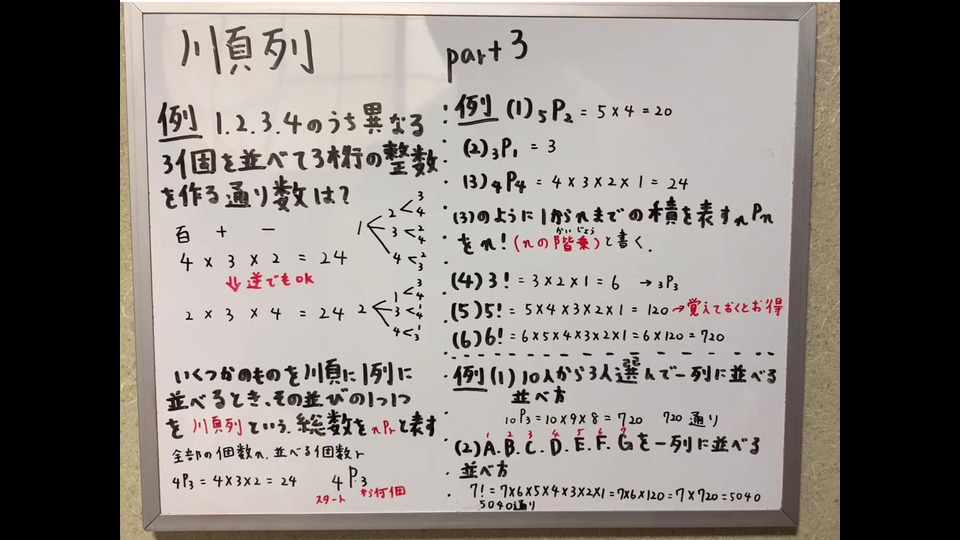 順列 part 3
例 1.2.3.4のうち異なる
3個を並べて3桁の整数
を作る通り数は?
百 十 一
4 × 3 × 2 = 24
⇓ 逆でもOK
2 × 3 × 4 = 24
1 2 3 4
3 2 4
4 2 3
2 1 3 4
3 1 4
4 1 3
いくつかのものを順に1列に
並べるとき、その並びの1つ1つ
を順列という. 総数をnPrと表す
全部の個数n, 並べる個数r
4P3 = 4×3×2 = 24 4P3
スタート から何個
例 (1) 5P2 = 5×4 = 20
(2) 3P1 = 3
(3) 4P4 = 4×3×2×1 = 24
(3)のように1からnまでの積を表すnPn
かいじょう
をn! (nの階乗)と書く.
(4) 3! = 3×2×1 = 6 → 3P3
(5) 5! = 5×4×3×2×1 = 120 →覚えておくとお得
(6) 6! = 6×5×4×3×2×1 = 6×120 = 720
例 (1) 10人から3人選んで一列に並べる
並べ方
10P3 = 10×9×8 = 720 720通り
1 2 3 4 5 6 7
(2) A.B.C.D.E.F.Gを一列に並べる
並べ方
7! = 7×6×5×4×3×2×1 = 7×6×120 = 7×720 = 5040
5040通り